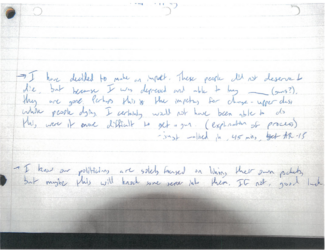 → I have decided to make an impact. These people did not deserve to
die, but because I was depressed and able to buy ____ (guns?),
they are gone. Perhaps this is the impetus for change - upper class
white people dying. I certainly would not have been able to do
this, were it more difficult to get a gun. (explanation of process)
- just walked in. 45 mins.
→ I know our politicians are solely focused on lining their own pockets,
but maybe this will knock some sense into them. If not, good luck